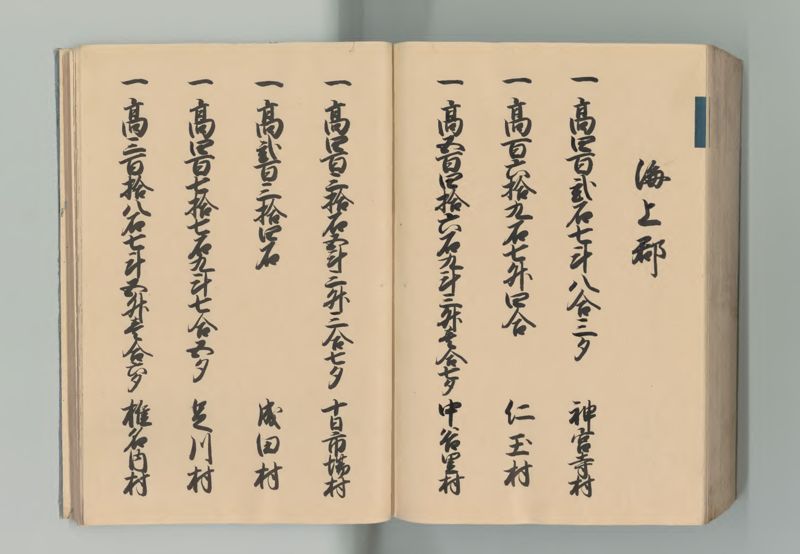 海上郡
一 高四百弐石七斗八合三夕 神宮寺村
一 高百六拾九石七升四合 仁玉村
一 高五百四拾六石九斗三升壱合七夕 中谷里村
一 高四百三拾石五斗二升三合七夕 十日市場村
一 高弐百三拾四石 成田村
一 高四百七拾七石九斗七合五夕 足川村
一 高三百拾八石七斗五升壱合六夕 椎名内村